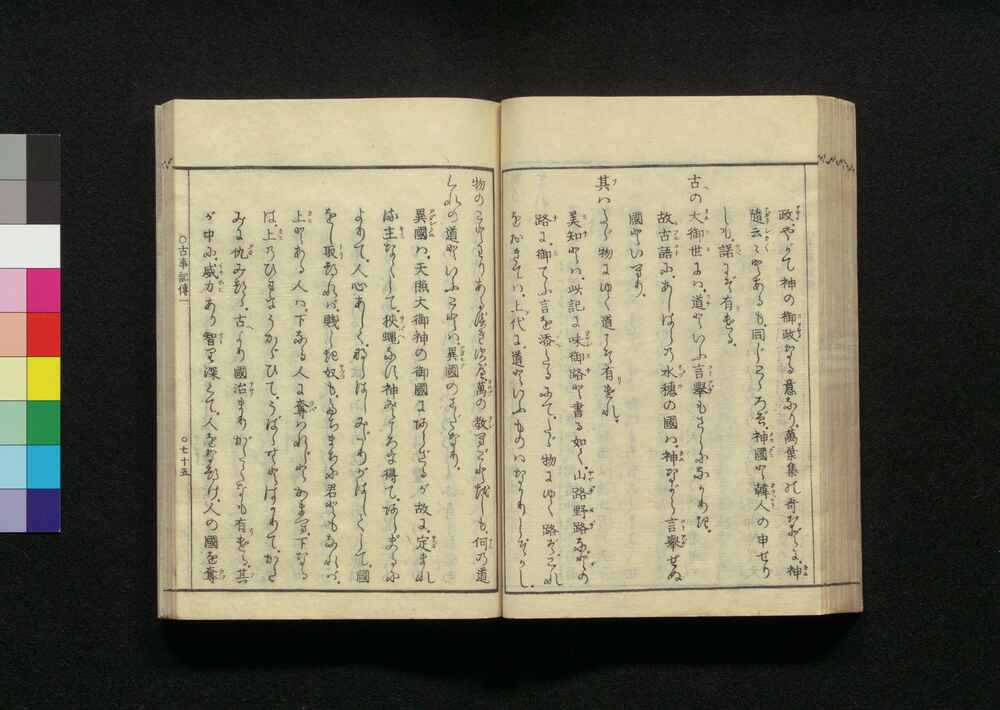 政やがて神の御政なる意なり、萬葉集の哥などに、神
隨云々とあるも、同じこゝろぞ、神國と韓人の申せり
しも、諾にぞ有ける、
古の大御世には、道といふ言擧もさらになかりき、
故古語に、あしはらの水穗の國は、神ながら言擧せぬ
國といへり、
其はたゞ物にゆく道こそ有けれ、
美知とは、此記に味御路と書る如く、山路野路などの
路に、御てふ言を添たるにて、たゞ物にゆく路ぞ、これ
をおきては、上代に、道といふものはなかりしぞかし、
物のことわりあるべきすべ、萬の教へごとをしも、何の道
くれの道といふことは、異國のさだなり、
異國は、天照大御神の御國にあらざるが故に、定まれ
る主なくして、狹蠅なす神ところを得て、あらぶるに
よりて、人心あしく、ならはしみだりがはしくして、國
をし取つれば、賤しき奴も、たちまちに君ともなれば、
上とある人は、下なる人に奪はれじとかまへ、下なる
は、上のひまをうかゞひて、うばゝむとはかりて、かた
みに仇みつゝ、古より國治まりがたくなも有ける、其
が中に、威力あり智り深くて、人をなつけ、人の國を奪
〇古事記傳一
〇七十五